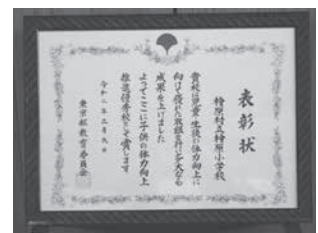 表彰状
檜原村立檜原小学校
貴校は児童・生徒の体力向上に
向けて優れた取組を行い多大なる
成果を上げました
よってここに子供の体力向上
推進優秀校として賞します
令和二年
東京都教育委員会